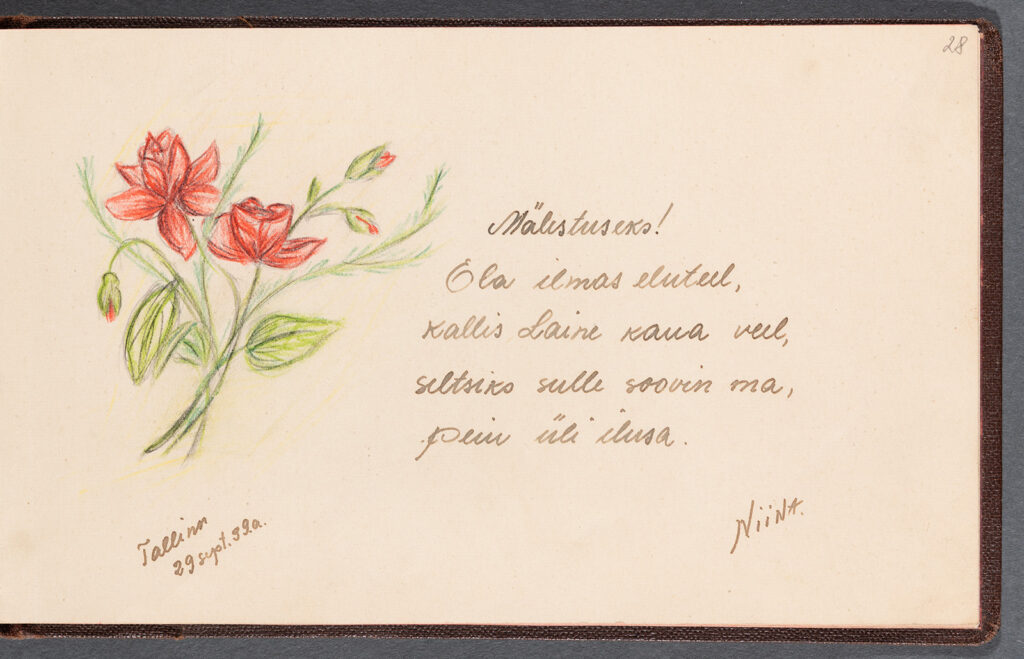 28
Mälestuseks!
Ela ilmas eluteel,
kallis Laine kaua veel,
seltsiks sulle soovin ma,
pein üli ilusa.
Niina.
Tallinn
29 sept. 39.a.